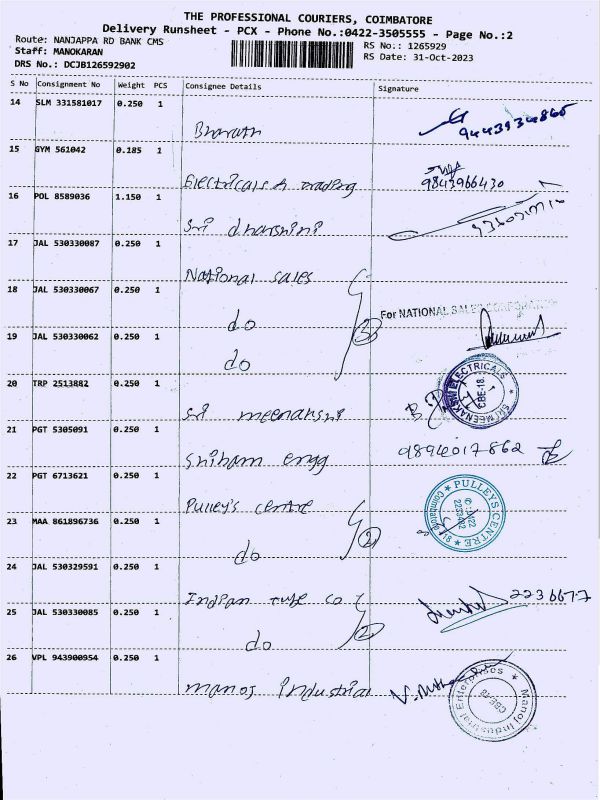 THE PROFESSIONAL COURIERS, COIMBATORE
Delivery Runsheet - PCX - Phone No.:0422-3505555 - Page No.:2
Route: NANJAPPA RD BANK CMS
RS No.: 1265929
Staff: MANOKARAN
RS Date: 31-Oct-2023
DRS No.: DCJB126592902
S No Consignment No Weight PCS Consignee Details Signature
14 SLM 331581017 0.250 1
Bharath
15 GYM 561042 0.185 1
Electricals & trading 9843966430
16 POL 8589036 1.150 1
Sri dharshini
17 JAL 530330087 0.250 1
National sales
18 JAL 530330067 0.250 1
do
3
For NATIONAL SALES CORPORATION
19 JAL 530330062 0.250 1
do
20 TRP 2513882 0.250 1
Sri meenakshi
SRI MEENAKSHI ELECTRICALS
CBE-18.
21 PGT 5305091 0.250 1
Sriham engg 9894017862
22 PGT 6713621 0.250 1
Pulley's centre
PULLEYS CENTRE
23 MAA 861896736 0.250 1
do
2
24 JAL 530329591 0.250 1
Indian tube co 2236677
25 JAL 530330085 0.250 1
do
2
26 VPL 943900954 0.250 1
manoj industrial
Manoj Industrial Enterprises
CBE-18